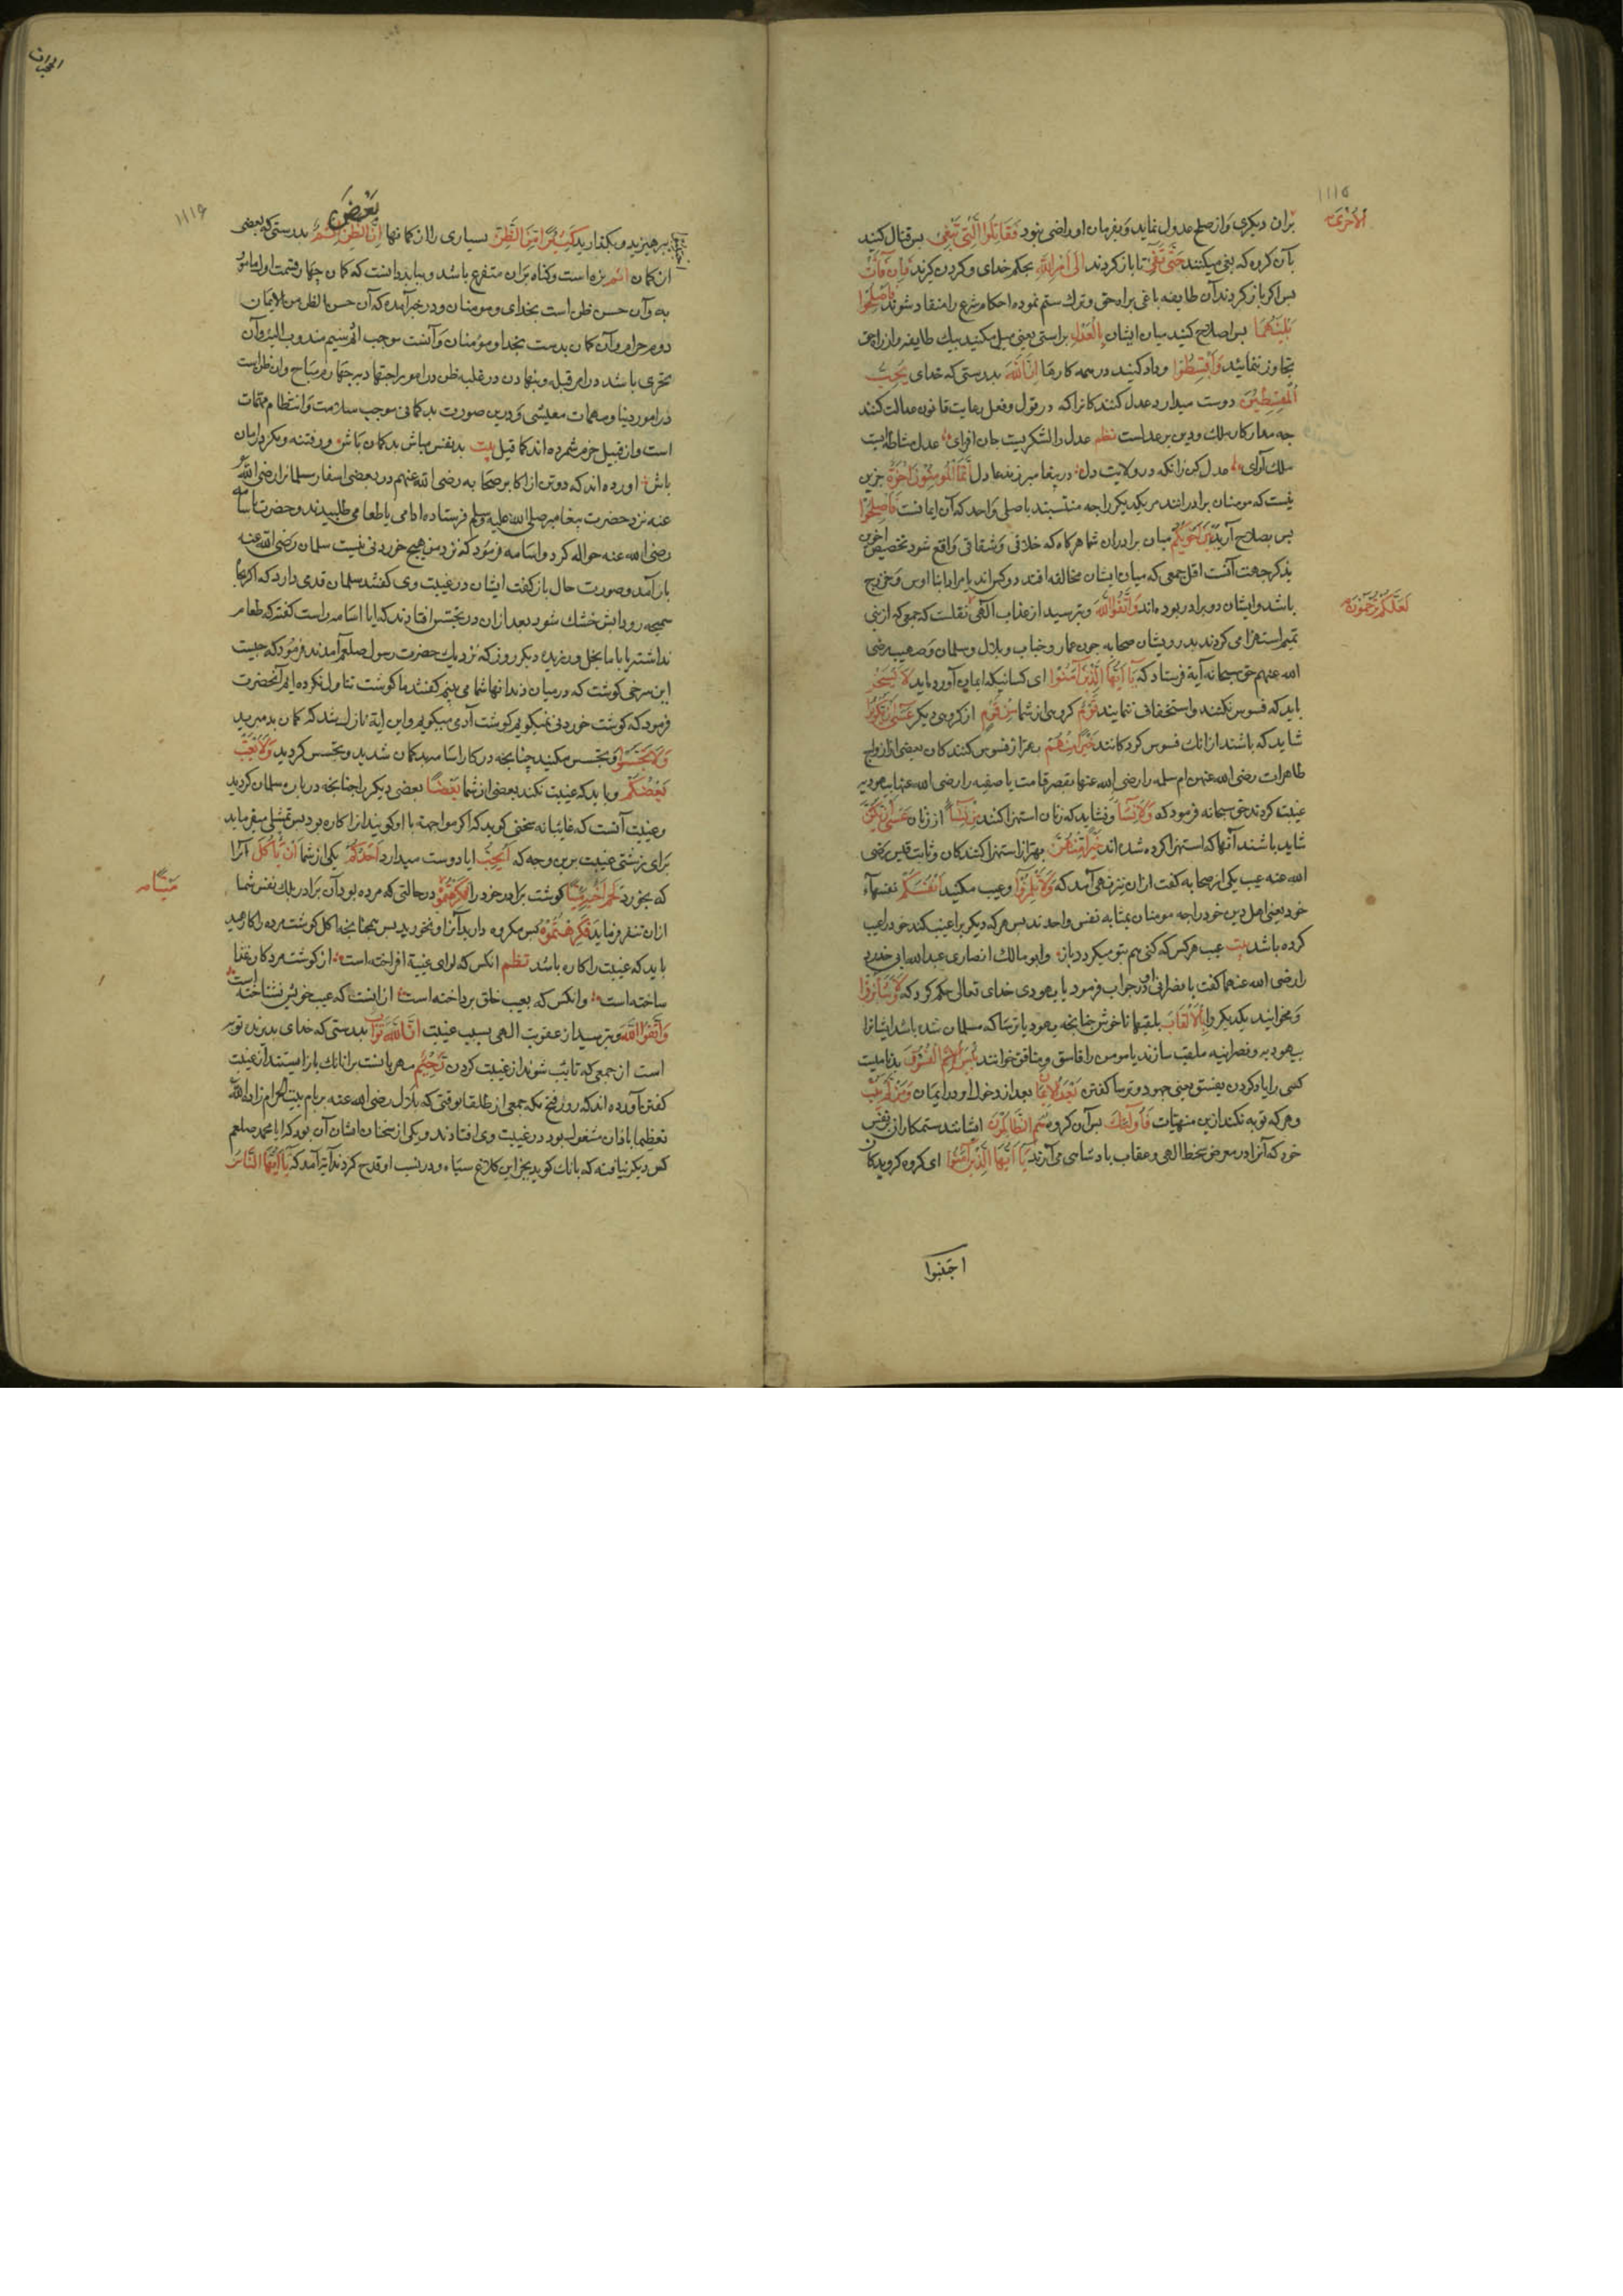 ۱۱۱۵
الأُخْرَىٰ
بران دیکری و از صلح عدول نماید و بفرمان او راضی نبود فَقَاتِلُوا الَّتِي تَبْغِي بس قتال کنید
بآن کروه که بغی میکنند حَتَّى تَفِيءَ تا باز کردند إِلَى أَمْرِ اللَّهِ بحکم خدای و کردن کیرند فَإِنْ فَاءَتْ
بس اکر باز کردند آن طایفه باغی براه حق و ترك ستم نموده احکام شرع را منقاد شوند فَأَصْلِحُوا
بَيْنَهُمَا بس اصلاح کنید میان ایشان بِالْعَدْلِ براستی یعنی میل مکنید بیك طایفه و از راه حق
تجاوز ننمائید وَأَقْسِطُوا و داد کنید در همه کارها إِنَّ اللَّهَ بدرستی که خدای يُحِبُّ
الْمُقْسِطِينَ دوست میدارد عدل کنندکانرا که در قول و فعل رعایت قانون عدالت کنند
جه مدار کار ملك و دین بر عدلست نظم عدل را لشکریست جان افزای عدل مشاطه ایست
ملك آرای عدل کن زانکه در ولایت دل در بیغامبر زند عادل إِنَّمَا الْمُؤْمِنُونَ إِخْوَةٌ جزین
نیست که مومنان برادرانند مر یکدیکر را جه منتسبند باصلی واحد که آن ایمانست فَأَصْلِحُوا
بس بصلاح آرید بَيْنَ أَخَوَيْكُمْ میان برادران شما هرکاه که خلافی و شقاقی واقع شود تخصیص اخوین
بذکر جهت آنست اقل جمعی که میان ایشان مخالفه افتد دو کس اند یا مراد ابنا اوس و خزرج
باشد و ایشان دو برادر بوده اند وَاتَّقُوا اللَّهَ و بترسید از عذاب الهی نقلست که جمعی که از بنی
لَعَلَّكُمْ تُرْحَمُونَ
تمیم استهزا می کردند بدرویشان صحابه جون عمار و خباب و بلال و سلمان و صهیب رضی
الله عنهم حق سبحانه آیة فرستاد که يَا أَيُّهَا الَّذِينَ آمَنُوا ای کسانیکه ایمان آورده اید لَا يَسْخَرْ
باید که فسوس نکنند و استخفاف ننمایند قَوْمٌ کروهی از شما مِنْ قَوْمٍ از کروهی دیکر عَسَى أَنْ يَكُونُوا
شاید که باشند از انك فسوس کرد کانند خَيْرًا مِنْهُمْ بهتر از فسوس کنندکان بعضی از ازواج
طاهرات رضی الله عنهن ام سلمه را رضی الله عنها بقصر قامت یا صفیه را رضی الله عنها بیهودیه
غیبت کردند حق سبحانه فرمود که وَلَا نِسَاءٌ و نشاید که زنان استهزا کنند مِنْ نِسَاءٍ از زنان عَسَى أَنْ يَكُنَّ
شاید باشند آنها که استهزا کرده شده اند خَيْرًا مِنْهُنَّ بهتر از استهزا کنندکان و ثابت قیس رضی
الله عنه عیب یکی از صحابه کفت ازان نیز نهی آمد که وَلَا تَلْمِزُوا و عیب مکنید أَنْفُسَكُمْ نفسهاء
خود یعنی اهل دین خود را جه مومنان بمثابه نفس واحدند بس هر که دیکریرا عیب کند خود را عیب
کرده باشد بیت عیب هر کس که کنی هم بتو میکردد باز و ابو مالك انصاری عبدالله ابی حدرد
را رضی الله عنهما کفت یا نصرانی او در جواب فرمود یا یهودی خدای تعالی حکم کرد که وَلَا تَنَابَزُوا
و مخوانید یکدیکر را بِالْأَلْقَابِ بلقبهاء ناخوش جنانجه یهود یا ترسا که مسلمان شده باشد ایشانرا
بیهودیه و نصرانیه ملقب سازند یا مومن را فاسق و منافق خوانند بِئْسَ الِاسْمُ الْفُسُوقُ بد نامیست
کسی را یاد کردن بفسق یعنی جهود و ترسا کفتن بَعْدَ الْإِيمَانِ بعد از دخول او در ایمان وَمَنْ لَمْ يَتُبْ
و هر که توبه نکند ازین منهیات فَأُولَٰئِكَ بس آن کروه هُمُ الظَّالِمُونَ ایشانند ستمکاران بر نفس
خود که آنرا در معرض سخط الهی و عقاب بادشاهی می آرند يَا أَيُّهَا الَّذِينَ آمَنُوا ای کروه کرویدکان
اجتنبوا
الحجرات
۱۱۱۶
بَعْضَ
ببرهیزید و بکذارید كَثِيرًا مِنَ الظَّنِّ بسیاری را از کمانها إِنَّ الظَّنِّ إِثْمٌ بدرستی که بعضی
از کمان اثم بزه است و کناه بران متفرع باشد و بباید دانست که کمان جهار قسمت اول مامور
به و آن حسن ظن است بخدای و مومنان و در خبر آمده که آن حسن الظن من الایمان
دوم حرام و آن کمان بدست بخدا و مؤمنان و آنست موجب اثم سیم مندوب الیه و آن
تحری باشد در امر قبله و بنهادن در غلبه ظن در امور اجتهادیه جهارم مباح و ان ظن است
در امور دنیا و مهمات معیشی و درین صورت بدکمانی موجب سلامت و انتظام مهمات
است و از قبیل حزم شمرده اند کما قیل بیت بدنفس مباش بدکمان باش و ز فتنه و مکر در امان
باش اورده اند که دو تن از اکابر صحابه رضی الله عنهم در بعضی اسفار سلمانرا رضی الله
عنه نزد حضرت بیغامبر صلی الله علیه وسلم فرستاده ادامی یا طعامی طلبیدند و حضرت باسامه
رضی الله عنه حواله کرد و اسامه فرمود که نزد من هیج خوردنی نیست سلمان رضی الله عنه
باز آمد و صورت حال باز کفت ایشان در غیبت وی کفتند سلمان قدمی دارد که اکر بجاه
سمیحه رود آبش خشك شود بعد ازان در تجسس افتادند که ایا اسامه راست کفته که طعام
نداشته یا با ما بخل ورزیده دیکر روز که نزدیك حضرت رسول صلعم آمدند فرمود که جیست
این سرخی کوشت که در میان دندانها شما می بینم کفتند ما کوشت تناول نکرده ایم آنحضرت
فرمود که کوشت خوردنی نمیکویم کوشت آدمی میکویم و این ایة نازل شد که کمان بد مبرید
وَلَا تَجَسَّسُوا و تجسس مکنید جنانجه در کار اسامه بدکمان شدید و تجسس کردید وَلَا يَغْتَبْ
بَعْضُكُمْ و باید که غیبت نکند بعضی از شما بَعْضًا بعضی دیکر را جنانجه در باره سلمان کردید
و غیبت آنست که غائبانه سخنی کوید که اکر مواجهه با او کویند ازا کاره بود بس تمثیلی میفرماید
برای زشتی غیبت برین وجه که أَيُحِبُّ ایا دوست میدارد أَحَدُكُمْ یکی از شما أَنْ يَأْكُلَ آنرا
که بخورد لَحْمَ أَخِيهِ کوشت برادر خود را فَكَرِهْتُمُوهُ در حالتی که مرده بود آن برادر بلك نفس شما
مَيْتًا
ازان تنفر نماید فَكَرِهْتُمُوهُ بس مکروه دارید آنرا و نخورید بس همجنانجه اکل کوشت مرده را کارهید
باید که غیبت را کاره باشد نظم انکس که لوای غیبة افراخته است از کوشت مردکان غذا
ساخته است وانکس که بعیب خلق برداخته است از انست که عیب خویش نشناخته است
وَاتَّقُوا اللَّهَ و بترسید از عقوبت الهی بسبب غیبت إِنَّ اللَّهَ تَوَّابٌ بدرستی که خدای بذیرنده توبه
است از جمعی که تائب شوند از غیبت کردن رَحِيمٌ مهربانست برانانك باز ایستند از غیبت
کفتن آورده اند که روز فتح مکه جمعی از طلقا بوقتی که بلال رضی الله عنه بر بام بیت الحرام زاده الله
تعظیما باذان مشغول بود در غیبت وی افتادند و یکی از سخنان ایشان آن بود که ایا محمد صلعم
کس دیکر نیافته که بانك کوید بجز این کلاغ سیاه و در نسب او قدح کردند آیة آمد که يَا أَيُّهَا النَّاسُ